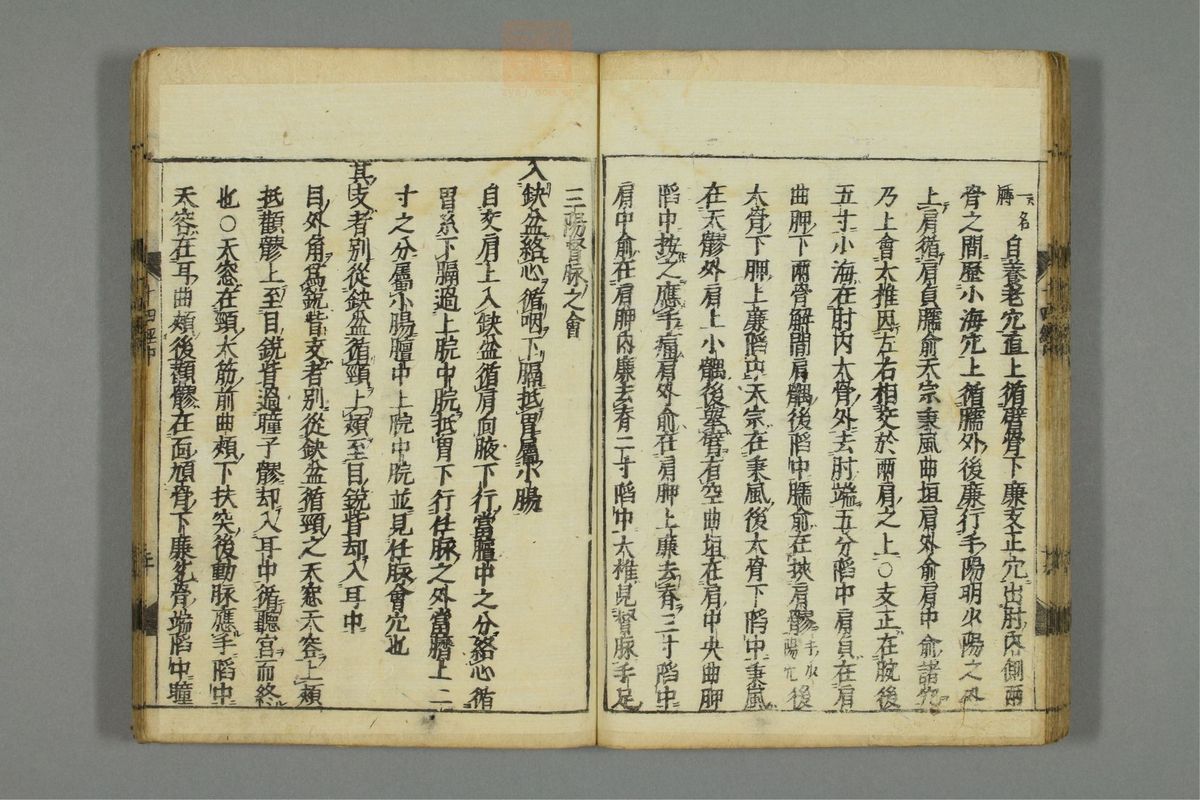 一名臑
自養老穴直上循臂骨下廉支正穴出肘内側兩
骨之間歷小海穴上循臑外後廉行手陽明少陽之外
上肩循肩貞臑俞天宗秉風曲垣肩外俞肩中俞諸穴
乃上會大椎因左右相交於兩肩之上○支正在腕後
五寸小海在肘内大骨外去肘端五分陷中肩貞在肩
曲胛下兩骨解間肩髃後陷中臑俞在挾肩髎手少陽穴後
大骨下胛上廉陷中天宗在秉風後大骨下陷中秉風
在天髎外肩上小髃後舉臂有空曲垣在肩中央曲胛
陷中按之應手痛肩外俞在肩胛上廉去脊三寸陷中
肩中俞在肩胛内廉去脊二寸陷中大椎見督脉手足
三陽督脉之會
入缺盆絡心循咽下膈抵胃屬小腸
自交肩上入缺盆循肩向腋下行當膻中之分絡心循
胃系下膈過上脘中脘抵胃下行任脉之外當臍上二
寸之分屬小腸膻中上脘中脘並見任脉會穴也
其支者別從缺盆循頸上頰至目銳眥却入耳中
目外角爲銳眥支者別從缺盆循頸之天窓天容上頰
抵顴髎上至目銳眥過瞳子髎却入耳中循聽宮而終
也○天窓在頸大筋前曲頰下扶突後動脉應手陷中
天容在耳曲頰後顴髎在面頄骨下廉兌骨端陷中瞳
十四經中